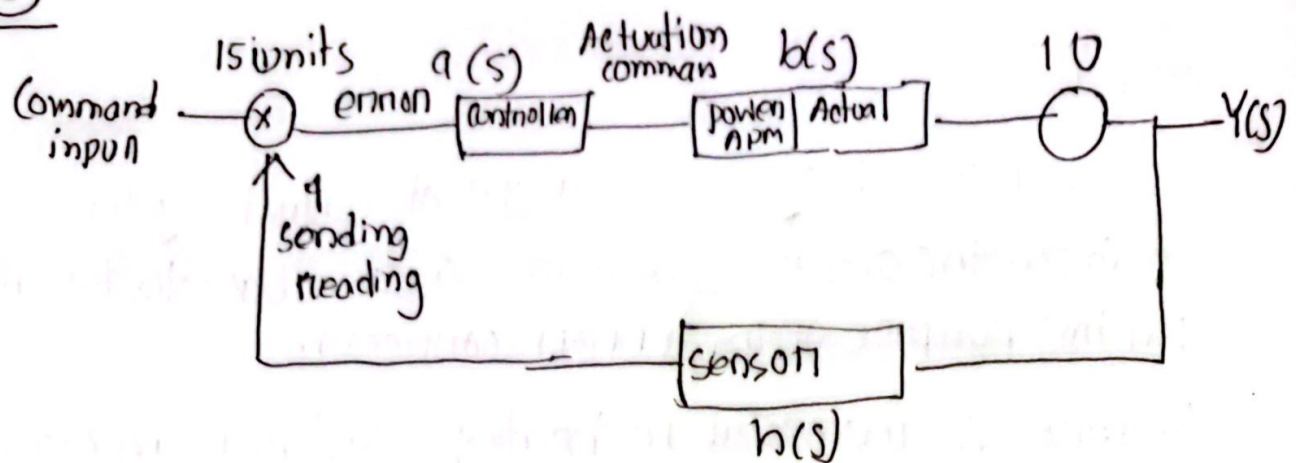 15 units
a(s)
Actuation
comman
b(s)
10
Command
inpun
x
ennon
Controllen
powen
Apm
Actual
Y(s)
9
sending
neading
senson
h(s)